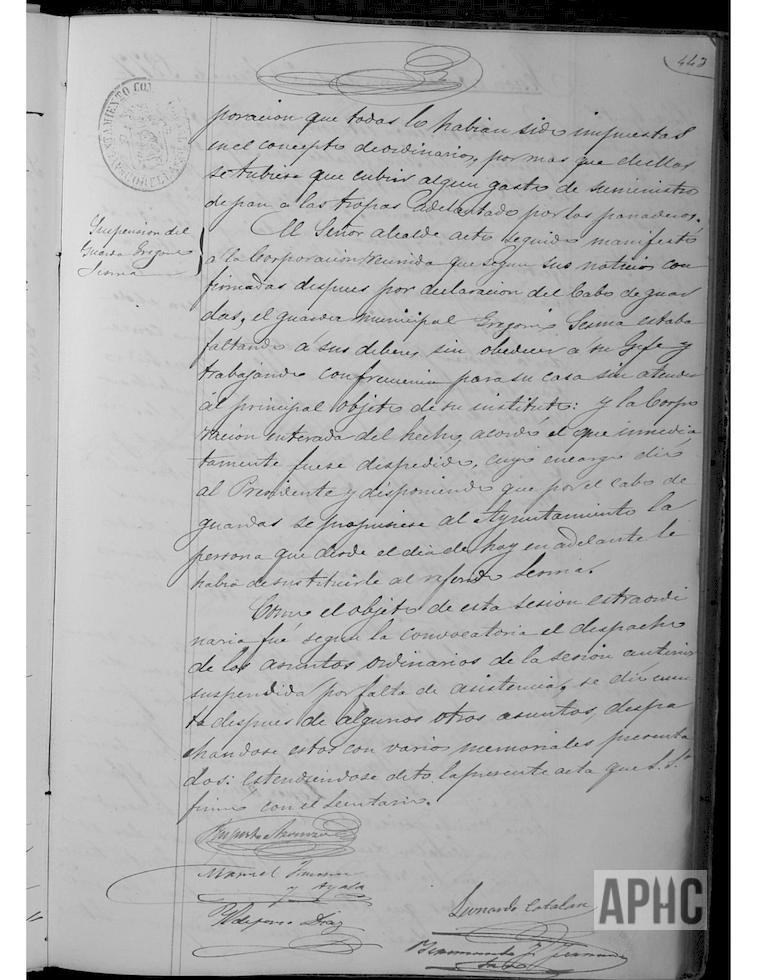 443
poracion que todas lo habian sido impuestas
en el concepto de ordinarios, por mas que de ellas
se tubiese que cubrir algun gasto de suministro
de pan a las tropas adelantado por los panaderos.
Suspension del
Guarda Gregorio
Sesma
El Señor alcalde acto seguido manifestó
a la Corporacion reunida que segun sus noticias con
firmadas despues por declaracion del Cabo de guar
das, el guarda municipal Gregorio Sesma estaba
faltando á sus deberes sin obedecer a su Gefe y
trabajando con frecuencia para su casa sin atender
ál principal objeto de su instituto: y la Corpo
racion enterada del hecho, acordó el que inmedia
tamente fuese despedido, cuyo encargo dió
al Presidente y disponiendo que por el cabo de
guardas se propusiese al Ayuntamiento la
persona que desde el dia de hoy en adelante le
habia de sustituirle al referido Sesma.
Como el objeto de esta sesion estraordi
naria fué segun la convocatoria el despacho
de los asuntos ordinarios de la sesion anterior
suspendida por falta de asistencia, se dió cuen
ta despues de algunos otros asuntos, despa
chandose estos con varios memoriales presenta
dos: estendiendose de to la presente acta que S. Sª
firmó con el Secretario.
Manuel
y Ayala
Leonardo Catalan
Yldefonso Diaz
APHC